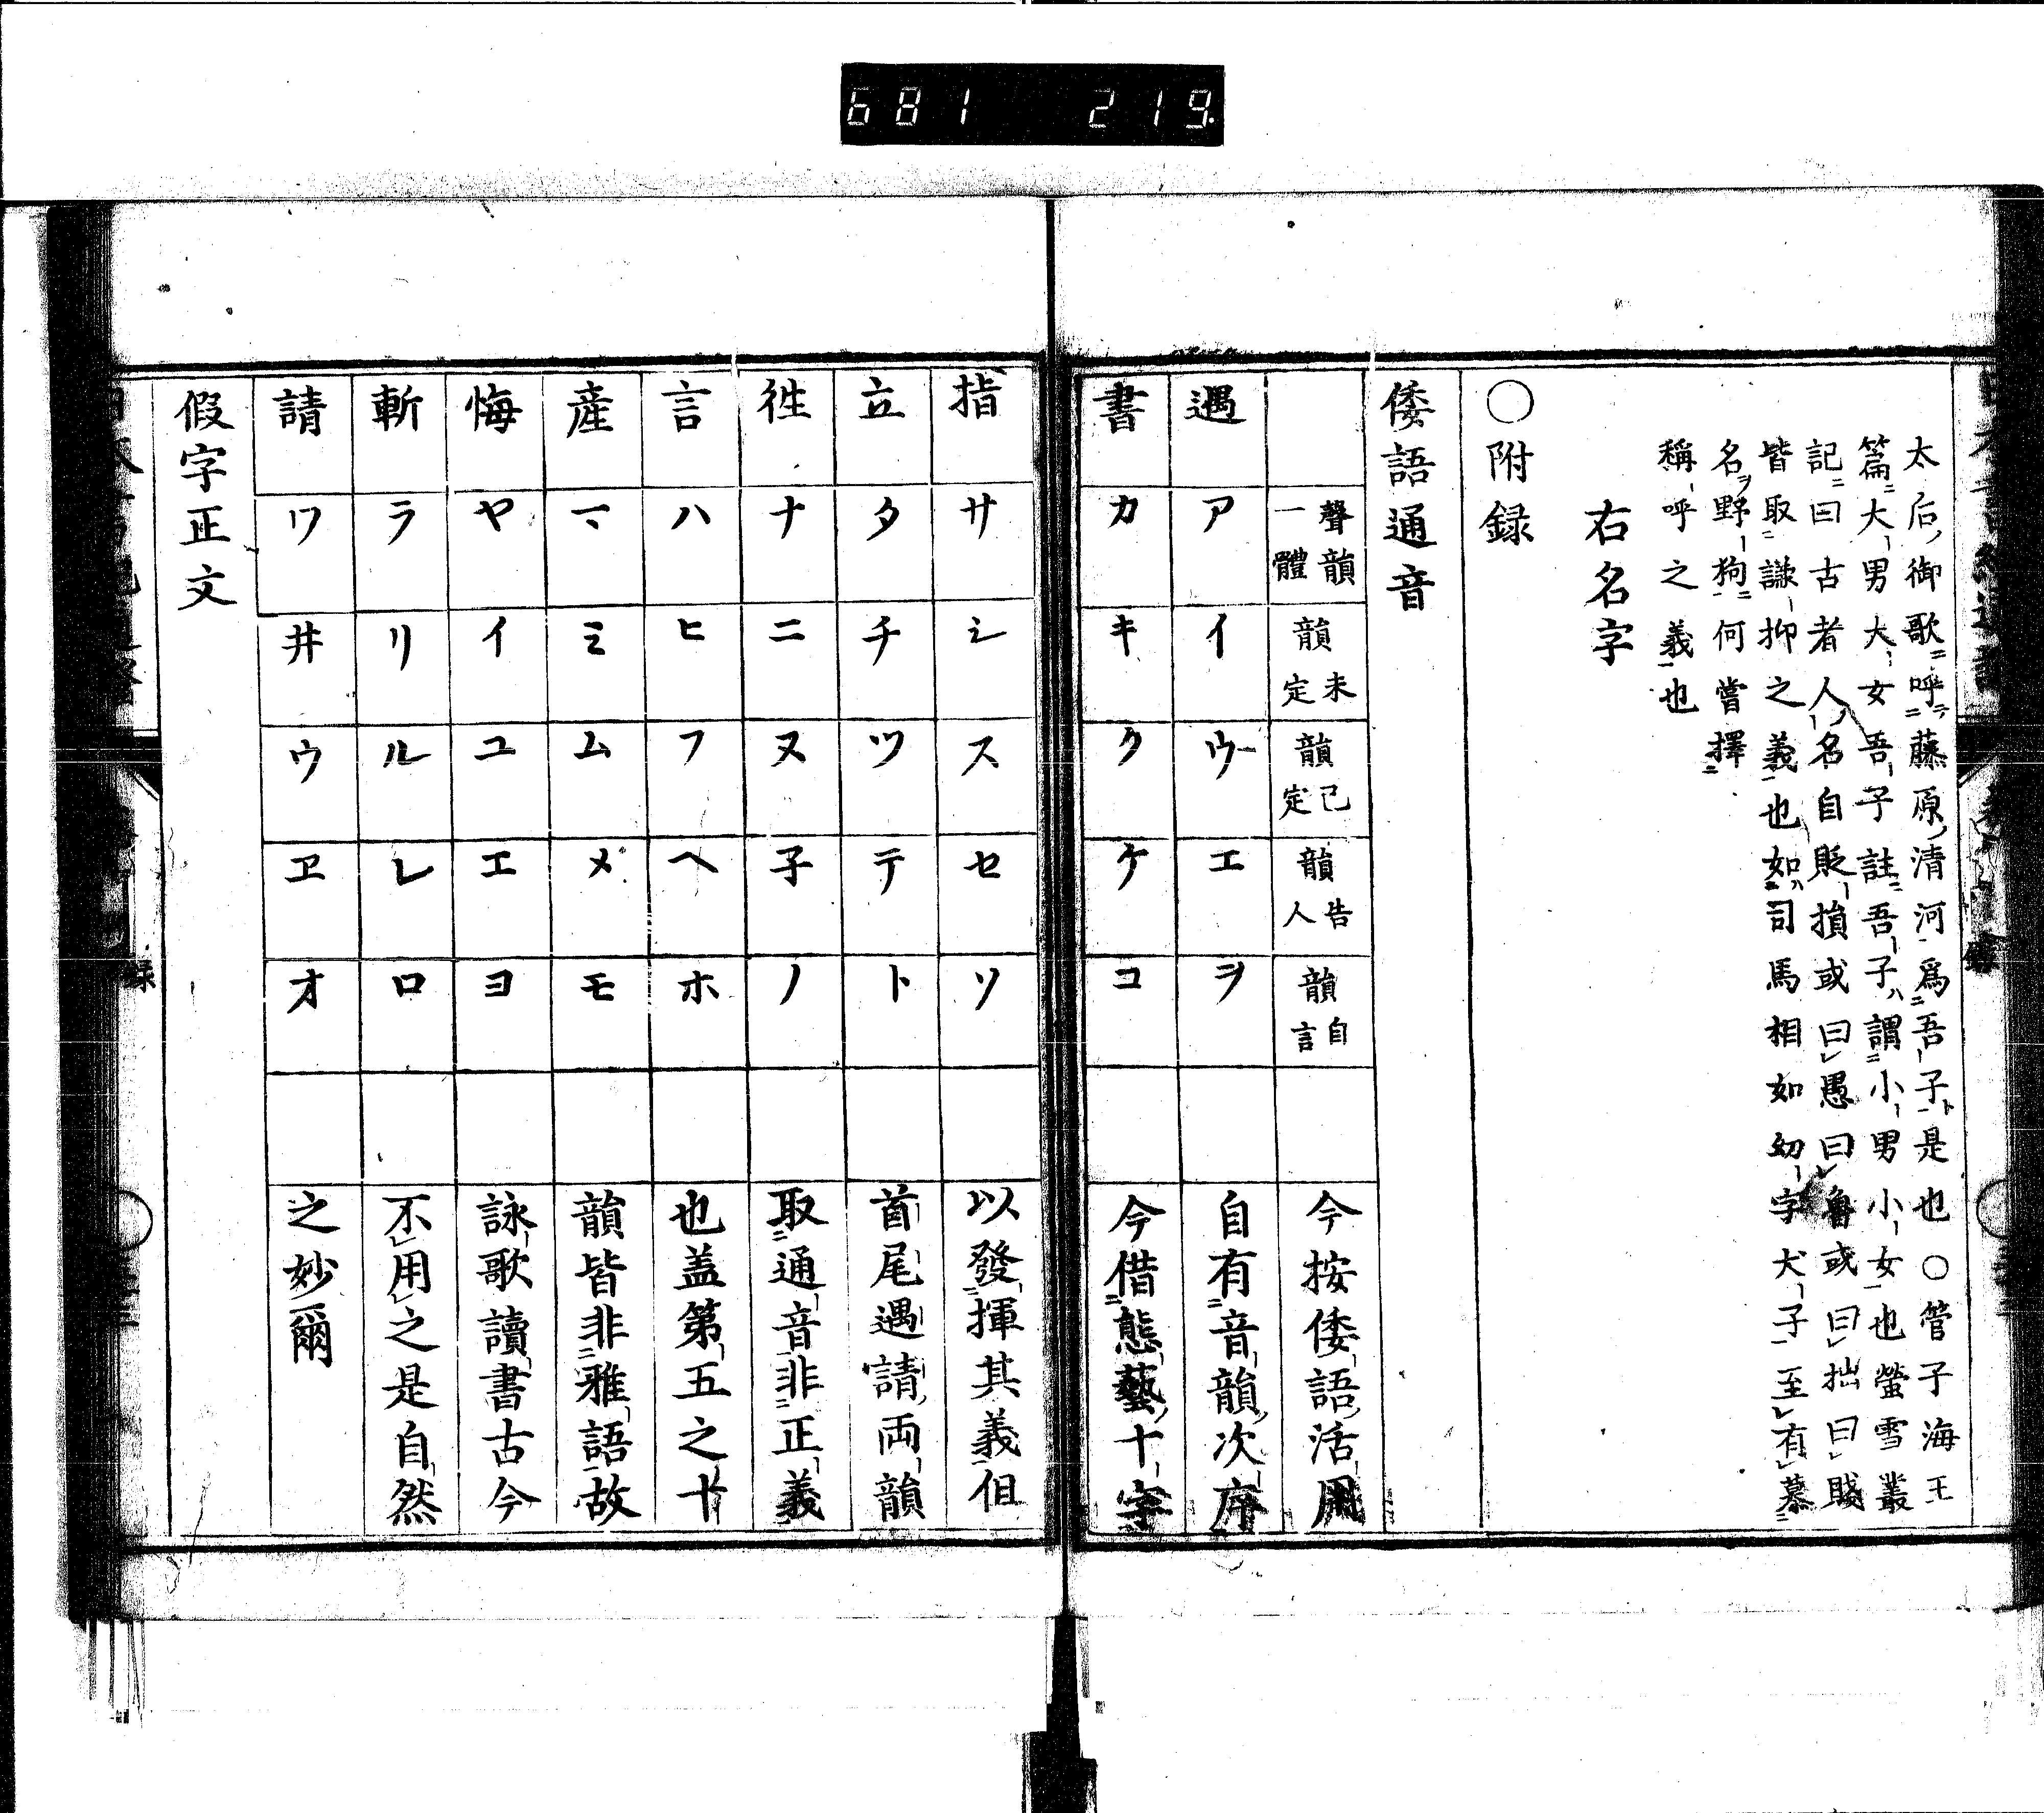 681 219
太后御歌呼藤原清河爲吾子是也○管子海王
篇大男大女吾子註吾子謂小男小女也螢雪叢
記曰古者人名自貶損或曰愚曰魯或曰拙曰賤
皆取謙抑之義也如司馬相如幼字犬子至有慕
名野狗何嘗擇
稱呼之義也
右名字
○附録
倭語通音
聲韻一體 韻未定 韻已定 韻告人 韻自言 今按倭語活用
遇 ア イ ウ エ ヲ 自有音韻次序
書 カ キ ク ケ コ 今借態藝十字
指 サ シ ス セ ソ 以發揮其義但
立 タ チ ツ テ ト 首尾遇請両韻
徃 ナ ニ ヌ 子 ノ 取通音非正義
言 ハ ヒ フ ヘ ホ 也盖第五之十
産 マ ミ ム メ モ 韻皆非雅語故
悔 ヤ イ ユ エ ヨ 詠歌讀書古今
斬 ラ リ ル レ ロ 不用之是自然
請 ワ 井 ウ ヱ オ 之妙爾
假字正文